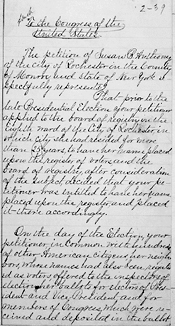 2-89
To the Congress of the
United States
The petition of Susan B. Anthony
of the City of Rochester in the County
of Monroe and State of New York re-
spectfully represents:
That prior to the
late Presidential Election your petitioner
applied to the board of registry in the
Eighth ward of the City of Rochester, in
which city she had resided for more
than 25 years to have her name placed
upon the register of voters and the
board of registry, after consideration
of the subject decided that your pe-
titioner was entitled to have her name
placed upon the register and placed
it there accordingly.
On the day of the Election, your
petitioner in common with hundreds
of other American citizens, her neigh-
bors, whose names had also been register-
ed as voters, offered to the inspectors of
election, her ballots for electors of Pres-
ident and Vice President, and for
members of Congress, which were re-
ceived and deposited in the ballot